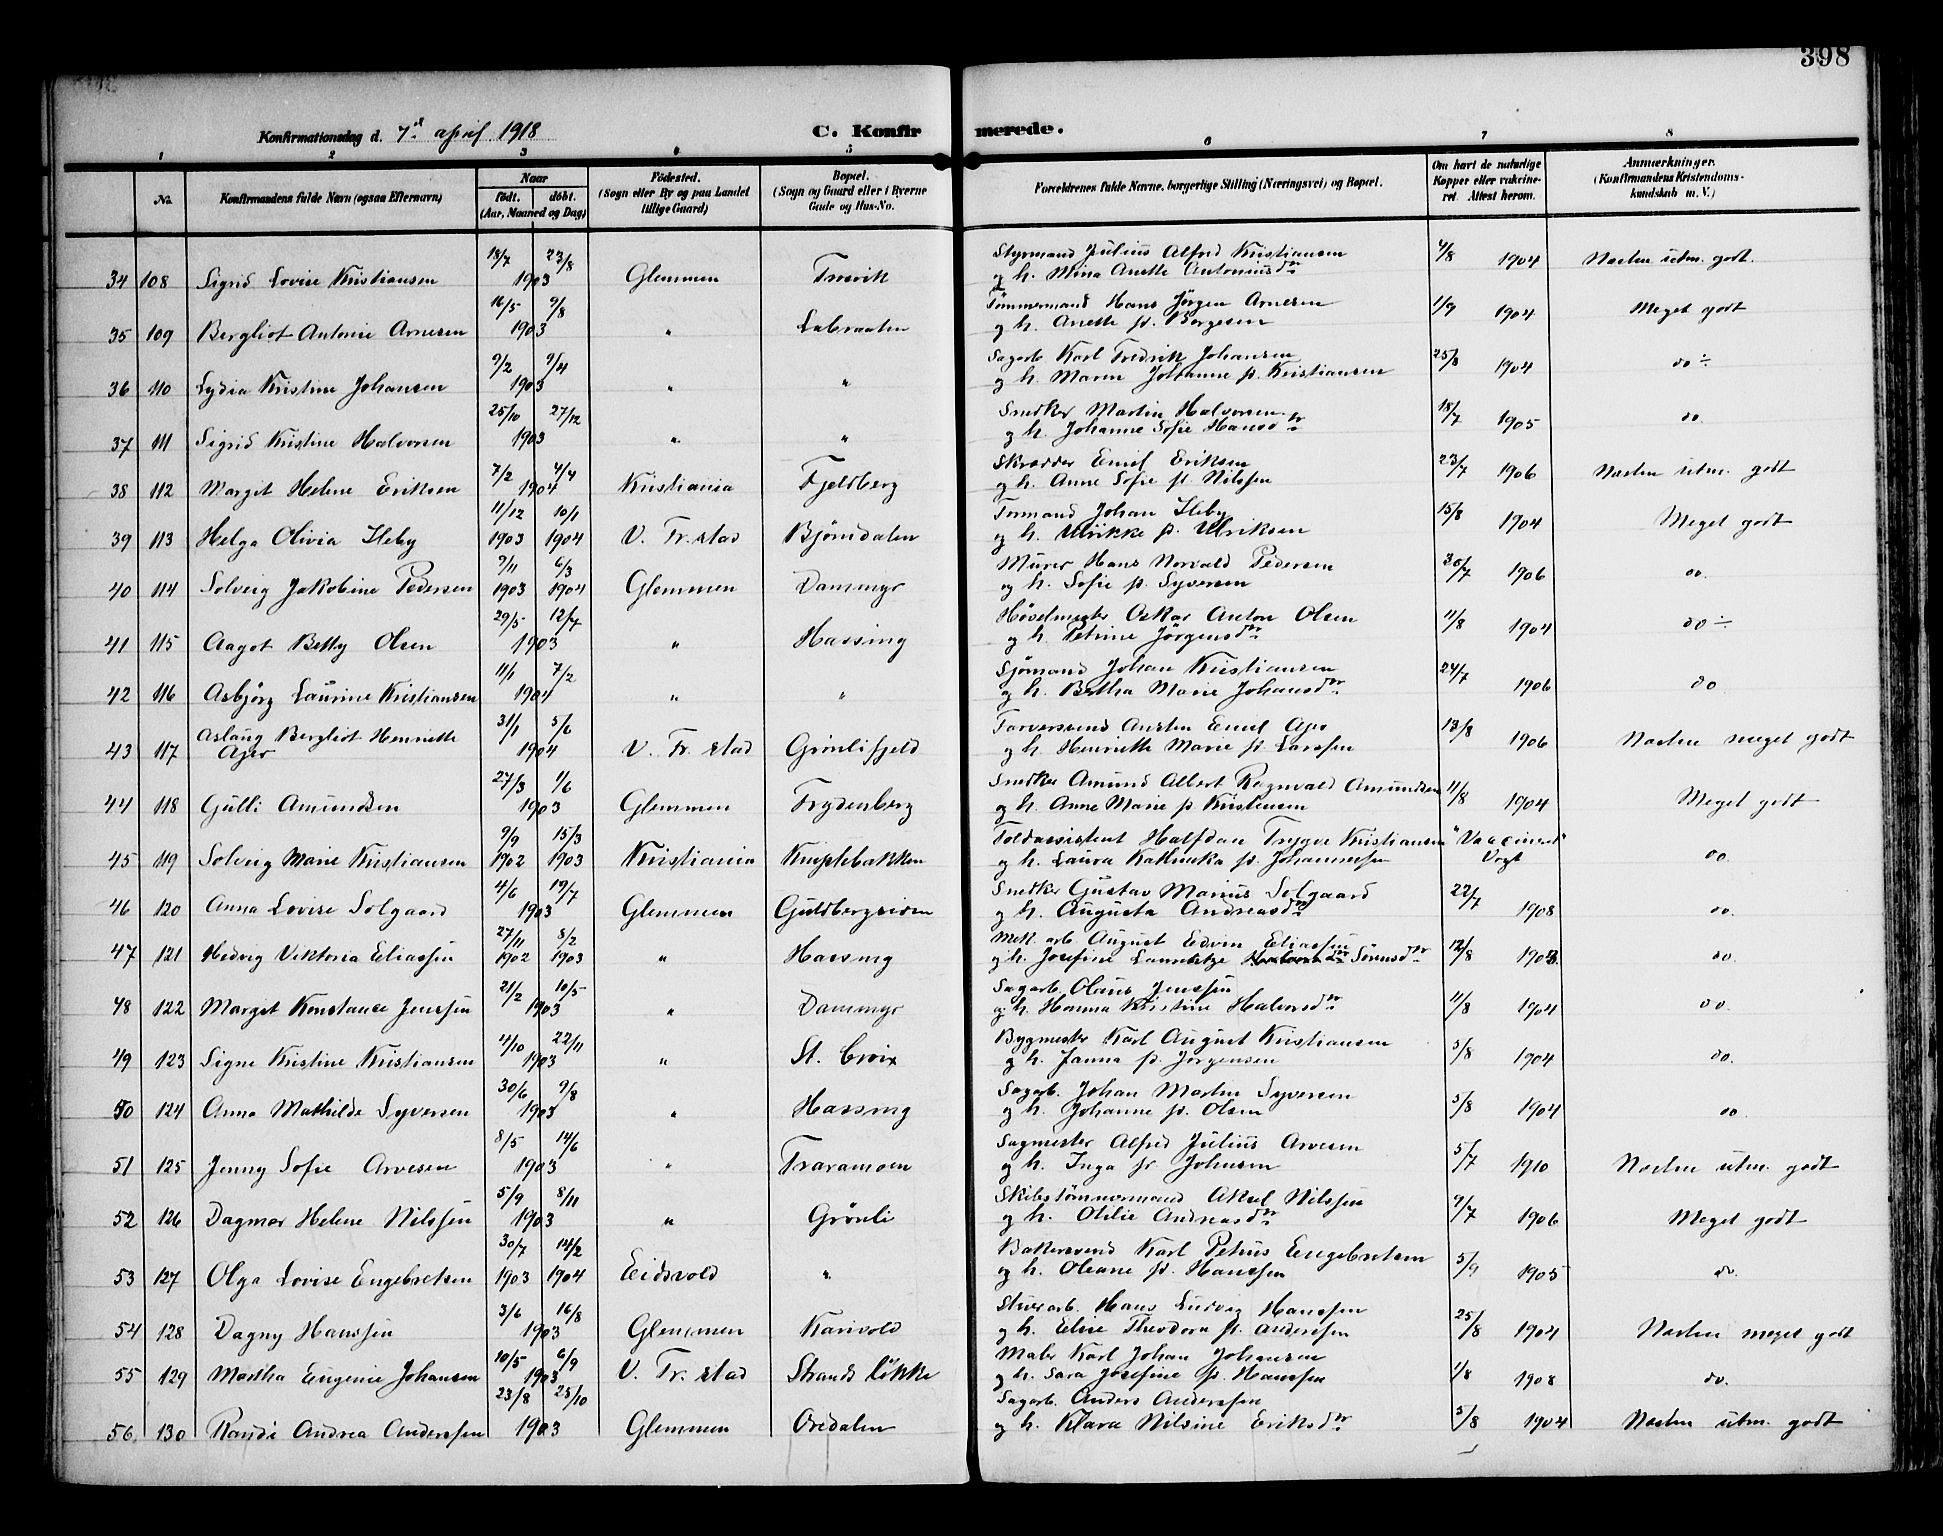 398
Konfirmationsdag d. 7d april 1918
C. Konfirmerede.
1 2 3 4 5 6 7 8
No.
Konfirmandens fulde Navn (ogsaa Efternavn)
Naar
født. døbt.
(Aar, Maaned og Dag)
Fødested.
(Sogn eller By og paa Landet
tillige Gaard)
Bopæl.
(Sogn og Gaard eller i Byerne
Gade og Hus-No.
Forældrenes fulde Navne, borgerlige Stilling (Næringsvei) og Bopæl.
Om havt de naturlige
Kopper eller vakcine-
ret. Attest herom.
Anmærkninger.
(Konfirmandens Kristendoms-
kundskab m. V.)
34 108 Sigrid Lovise Kristiansen 18/7 23/8 1903 Glemmen Trosvik Styrmand Julius Alfred Kristiansen 4/8 1904 Næsten utm. godt.
og h. Mina Anette Antoniusdtr
35 109 Bergliot Antonie Arnesen 16/5 9/8 1903 " Labraaten Tømmermand Hans Jørgen Arnesen 1/9 1904 Meget godt
og h. Anette f. Borgesen
36 110 Lydia Kristine Johansen 9/2 9/4 1903 " " Sagarb. Karl Fredrik Johansen 25/8 1904 do ÷
og h. Maren Johanne f. Kristiansen
37 111 Sigrid Kristine Halvorsen 25/10 27/12 1903 " " Snedker Martin Halvorsen 18/7 1905 do.
og h. Johanne Sofie Hansdtr
38 112 Margit Helene Eriksen 7/2 4/4 1904 Kristiania Fjeldberg Skrædder Emil Eriksen 23/7 1906 Næsten utm. godt
og h. Anne Sofie f. Nilssen
39 113 Helga Olivia Ileby 11/12 1903 10/1 1904 V. Fr.stad Bjørndalen Formand Johan Ileby 15/8 1904 Meget godt
og h. Ulrikke f. Ulriksen
40 114 Solveig Jakobine Pedersen 9/11 1903 6/3 1904 Glemmen Dammyr Murer Hans Norvald Pedersen 30/7 1906 do.
og h. Sofie f. Syversen
41 115 Aagot Betty Olsen 29/5 12/7 1903 " Hassing Høvelmester Oskar Anton Olsen 11/8 1904 do ÷
og h. Petrine Jørgensdtr
42 116 Asbjørg Laurine Kristiansen 11/1 7/2 1904 " " Sjømand Johan Kristiansen 24/7 1906 do
og h. Bertha Marie Johansdtr
43 117 Aslaug Bergliot Henriette 31/1 5/6 1904 V. Fr.stad Grønlifjeld Farversvend Austen Emil Ajer 13/8 1906 Næsten meget godt
Ajer og h. Henriette Marie f. Larssen
44 118 Gulli Amundsen 27/3 1/6 1903 Glemmen Frydenberg Snedker Amund Albert Ragnvald Amundsen 11/8 1904 Meget godt
og h. Anne Marie f. Kristensen
45 119 Solveig Marie Kristiansen 9/9 1902 15/3 1903 Kristiania Kniplebakken Toldassistent Halfdan Trygve Kristiansen "Vaccineret" Vogt do.
og h. Laura Kathinka f. Johannessen
46 120 Anna Lovise Solgaard 4/6 19/7 1903 Glemmen Guldbergsiden Snedker Gustav Marius Solgaard 22/7 1908 do.
og h. Augusta Andreasdtr
47 121 Hedvig Viktoria Eliassen 27/11 1902 8/2 1903 " Hassing Mek. arb. August Edvin Eliassen 12/8 1903. do
og h. Josefine Sørensdtr
48 122 Margot Konstance Jenssen 21/2 10/5 1903 " Dammyr Sagarb. Olaus Jenssen 11/8 1904 do.
og h. Hanna Kristine Halvorsdtr
49 123 Signe Kristine Kristiansen 4/10 22/11 1903 " St. Croix Bygmester Karl August Kristiansen 5/8 1904 do.
og h. Janna f. Jørgensen
50 124 Anna Mathilde Syversen 30/6 9/8 1903 " Hassing Sagarb. Johan Martin Syversen 5/8 1904 do.
og h. Johanne f. Olsen
51 125 Jenny Sofie Arvesen 8/5 14/6 1903 " Traramoen Sagmester Alfred Julius Arvesen 5/7 1910 Næsten utm. godt
og h. Inga f. Johnsen
52 126 Dagmar Helene Nilssen 5/9 8/11 1903 " Grønli Skibstømmermand Aksel Nilssen 9/7 1906 Meget godt
og h. Otilie Andreasdtr
53 127 Olga Lovise Engebretsen 30/7 1903 14/2 1904 Eidsvold " Bakersvend Karl Petrus Engebretsen 5/9 1905 do.
og h. Oleane f. Hanssen
54 128 Dagny Hanssen 3/6 16/8 1903 Glemmen Karivold Stuerarb. Hans Ludvig Hanssen 25/8 1904 Næsten meget godt
og h. Elise Theodora f. Anderssen
55 129 Martha Eugenie Johansen 10/5 6/9 1903 V. Fr.stad Strands løkke Maler Karl Johan Johansen 1/8 1908 do.
og h. Sara Josefine f. Hanssen
56 130 Randi Andrea Anderssen 23/8 25/10 1903 Glemmen Oredalen Sagarb. Anders Anderssen 5/8 1904 Næsten utm. godt
og h. Klara Nilsine Eriksdtr